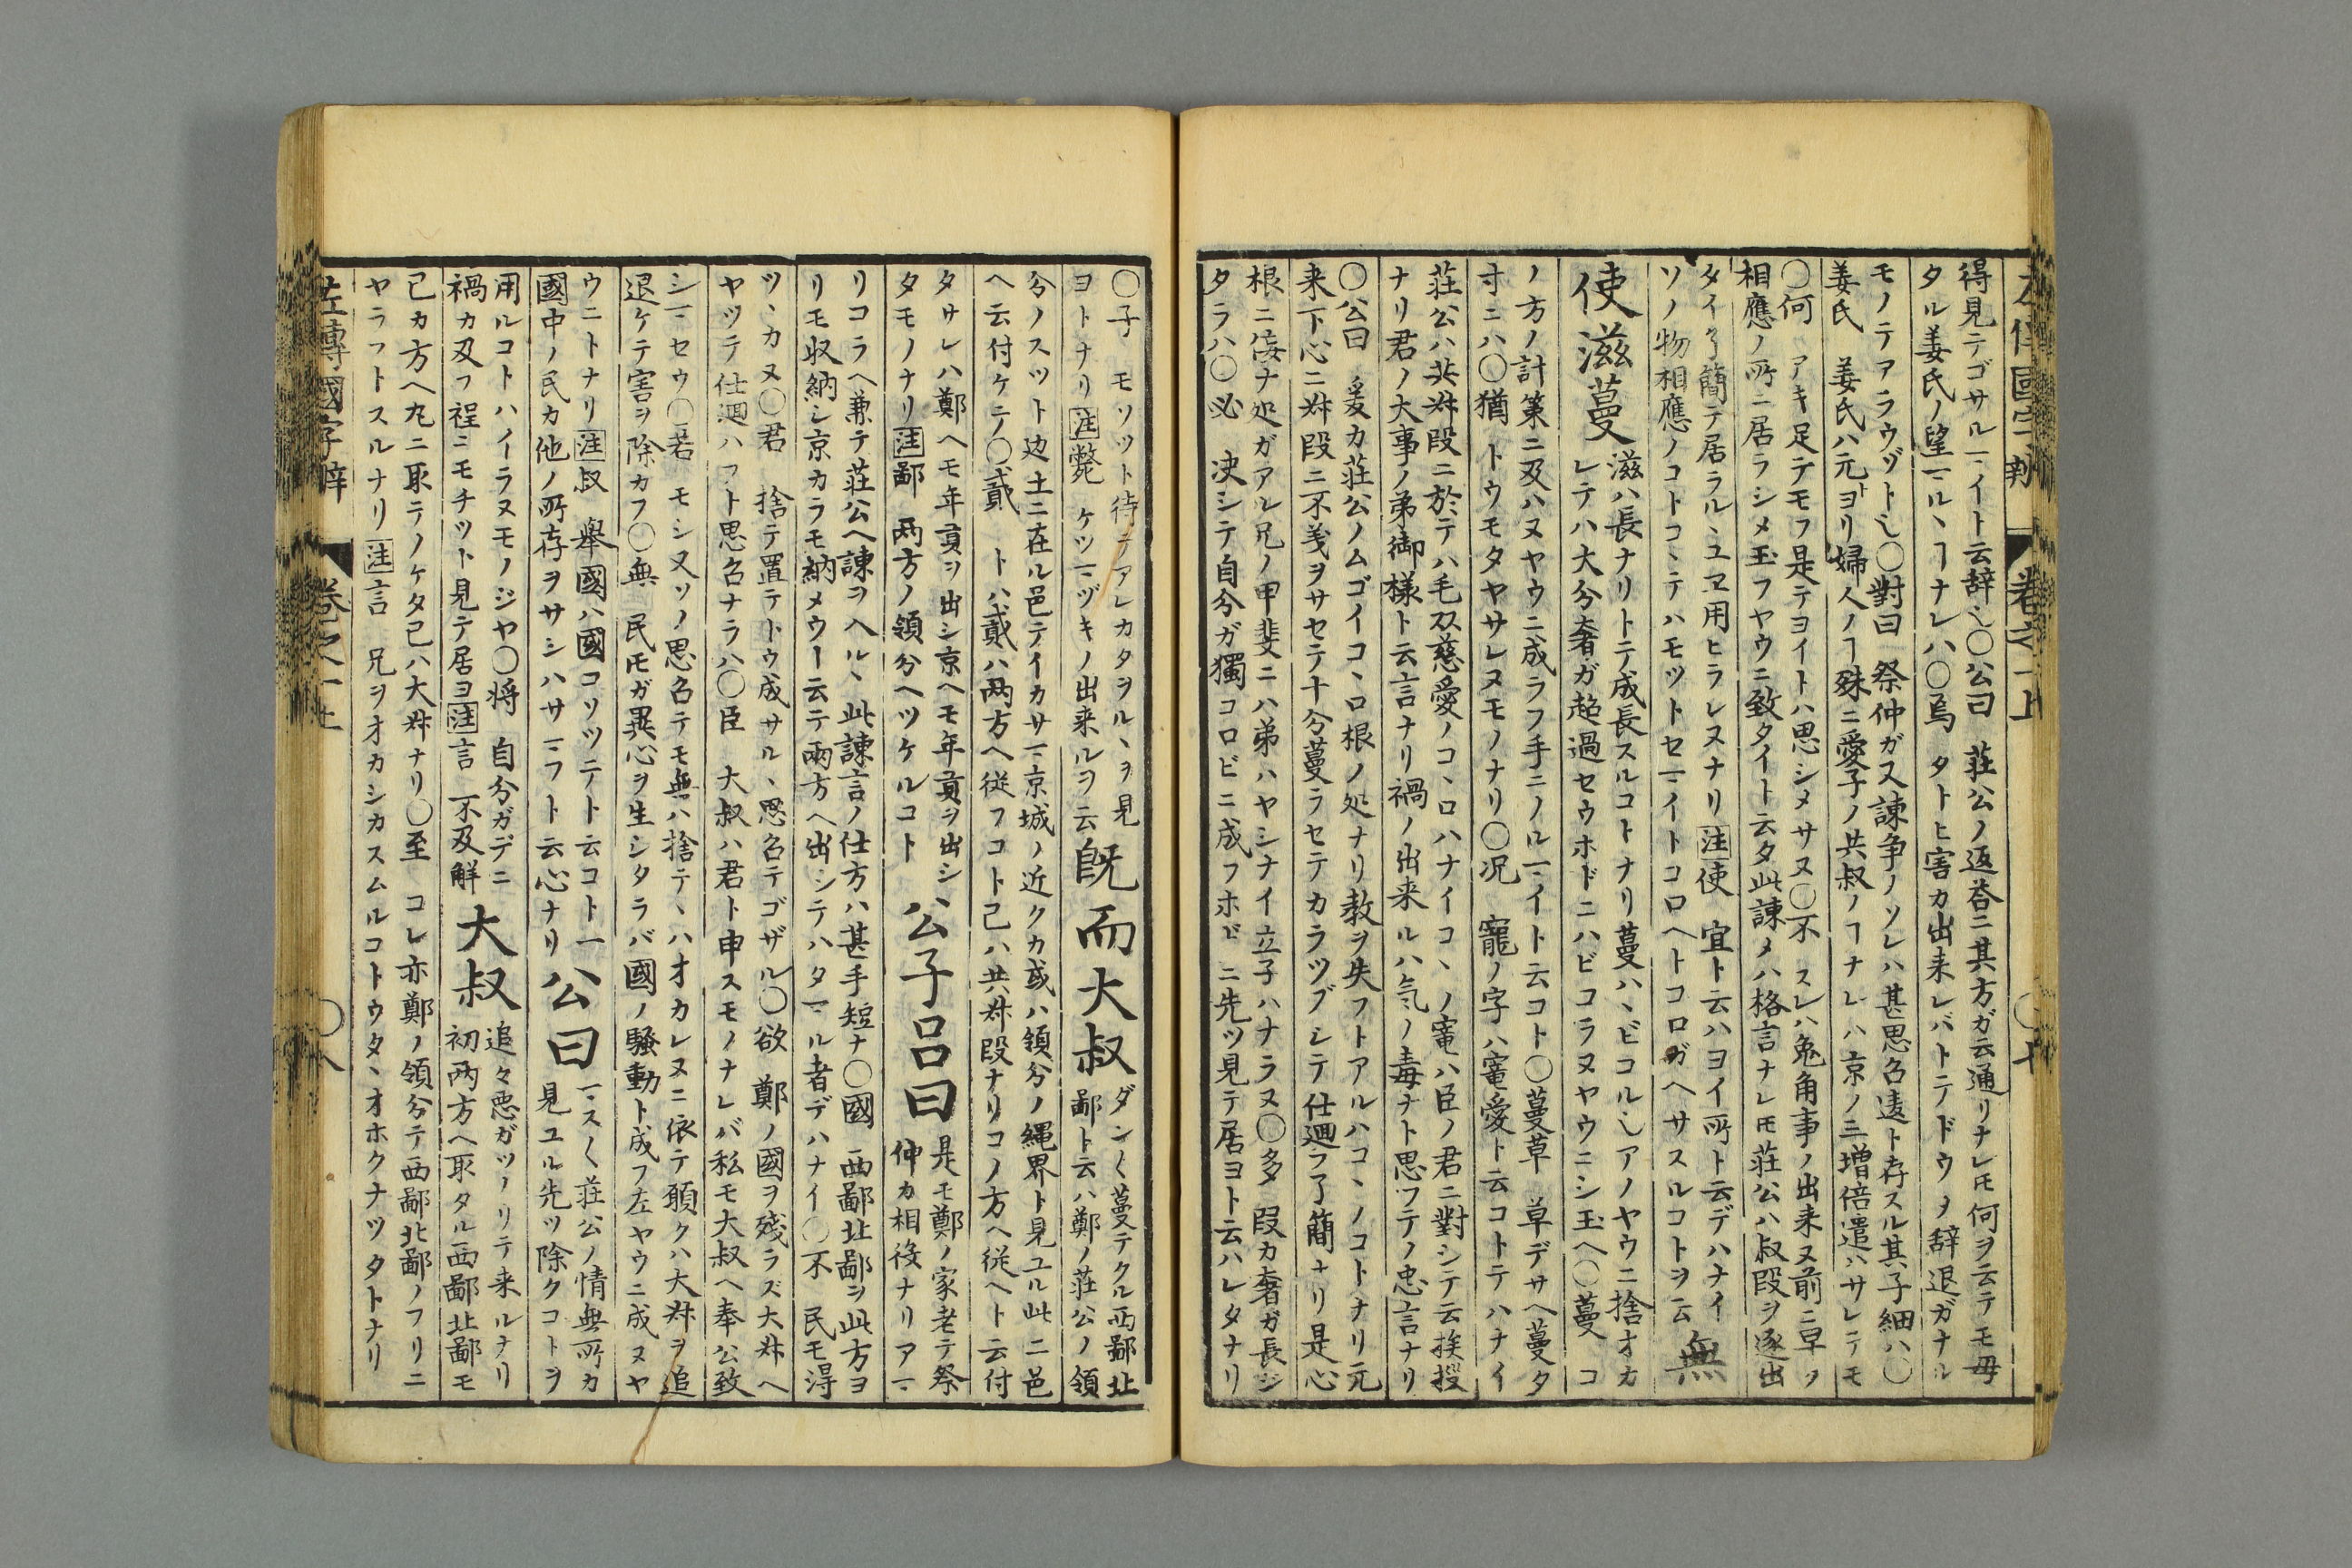 左傳國字辨
卷之一上
〇十
得見テゴサルマイト云辞也〇公曰　莊公ノ返荅ニ其方ガ云通リナレ𪜈何ヲ云テモ毋
タル姜氏ノ望マルヽヿナレハ〇焉　タトヒ害カ出来レバトテドウノ辞退ガナル
モノテアラウヅト也〇對曰　祭仲ガ又諫争ノソレハ甚思召違ト存スル其子細ハ〇
姜氏　姜氏ハ元ヨリ婦人ノヿ殊ニ愛子ノ共叔ノヿナレハ京ノ三増倍遣ハサレテモ
〇何　アキ足テモフ是テヨイトハ思シメサヌ〇不　スレハ兔角事ノ出来ヌ前ニ早ク
相應ノ所ニ居ラシメ玉フヤウニ致タイト云タ此諫メハ格言ナレ𪜈莊公ハ叔段ヲ逐出
タイ了簡テ居ラルヽユヱ用ヒラレヌナリ注使　宜ト云ハヨイ所ト云デハナイ
ソノ物相應ノコトコヽテハモツトセマイトコロヘトコロガヘサスルコトヲ云
無
使滋蔓
滋ハ長ナリトテ成長スルコトナリ蔓ハヽビコル也アノヤウニ捨オカ
レテハ大分奢ガ超過セウホドニハビコラヌヤウニシ玉ヘ〇蔓　コ
ノ方ノ計策ニ及ハヌヤウニ成ラフ手ニノルマイト云コト〇蔓草　草デサヘ蔓タ
寸ニハ〇猶　トウモタヤサレヌモノナリ〇况　寵ノ字ハ寵愛ト云コトテハナイ
莊公ハ共叔段ニ於テハ毛双慈愛ノコヽロハナイコヽノ寵ハ臣ノ君ニ對シテ云挨拶
ナリ君ノ大事ノ弟御様ト云言ナリ禍ノ出来ルハ気ノ毒ナト思フテノ忠言ナリ
〇公曰　爰カ莊公ノムゴイコヽロ根ノ処ナリ教ヲ失フトアルハコヽノコトナリ元
来下心ニ叔段ニ不義ヲサセテ十分蔓ラセテカラツブシテ仕廻フ了簡ナリ是心
根ニ倿ナ処ガアル兄ノ甲斐ニハ弟ハヤシナイ立子ハナラヌ〇多　段カ奢ガ長ジ
タラハ〇必　决シテ自分ガ獨コロビニ成フホドニ先ツ見テ居ヨト云ハレタナリ
〇子　モソツト待テアレカタヲルヽヲ見
ヨトナリ注斃　ケツマヅキノ出来ルヲ云
既而大叔
ダンく蔓テクル西鄙北
鄙ト云ハ鄭ノ莊公ノ領
分ノスツト边土ニ在ル邑テイカサマ京城ノ近クカ或ハ領分ノ縄界ト見ユル此二邑
ヘ云付ケテノ〇貳　トハ貳ハ两方ヘ従フコト己ハ共叔段ナリコノ方ヘ従ヘト云付
タサレハ鄭ヘモ年貢ヲ出シ京ヘモ年貢ヲ出シ
タモノナリ注鄙　两方ノ領分ヘツケルコト
公子呂曰
是モ鄭ノ家老テ祭
仲カ相役ナリアマ
リコラヘ兼テ莊公ヘ諫ヲヘルヽ此諫言ノ仕方ハ甚手短ナ〇國　西鄙北鄙ヲ此方ヨ
リモ収納シ京カラモ納メウト云テ兩方ヘ出シテハタマル者デハナイ〇不　民モ淂
ツヽカヌ〇君　捨テ置テトウ成サルヽ思召テゴザル〇欲　鄭ノ國ヲ残ラズ大叔ヘ
ヤツテ仕廻ハフト思召ナラハ〇臣　大叔ハ君ト申スモノナレバ私モ大叔ヘ奉公致
シマセウ〇若　モシ又ソノ思召テモ無ハ捨テヽハオカレヌニ依テ願クハ大叔ヲ追
退ケテ害ヲ除カフ〇無　民𪜈ガ異心ヲ生シタラバ國ノ騒動ト成フ左ヤウニ成ヌヤ
ウニトナリ注叔　舉國ハ國コソツテト云コト一
國中ノ民カ他ノ所存ヲサシハサマフト云心ナリ
公曰
マスく莊公ノ情無所カ
見ユル先ツ除クコトヲ
用ルコトハイラヌモノジヤ〇将　自分ガデニ
禍カ及フ程ニモチツト見テ居ヨ注言　不及解
大叔
追々悪ガツノリテ来ルナリ
初两方ヘ取タル西鄙北鄙モ
己カ方ヘ丸ニ取テノケタ己ハ大叔ナリ〇至　コレ亦鄭ノ領分テ西鄙北鄙ノフリニ
ヤラフトスルナリ注言　兄ヲオカシカスムルコトウタヽオホクナツタトナリ
左傳國字辨
卷之一上
〇八